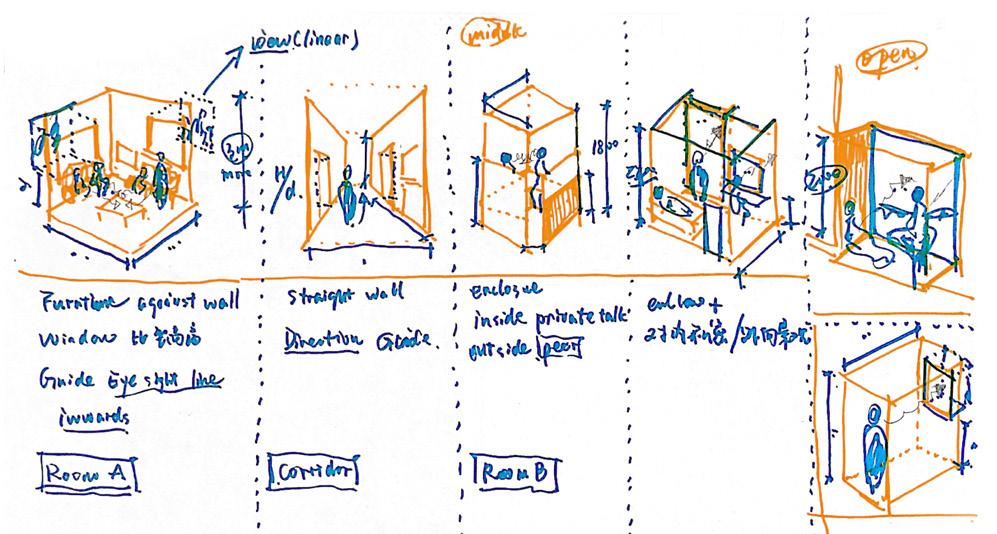 view (linear)
middle
open
3m
more
H/d.
1800
Furniture against wall
Window 比家具高
Guide Eye sight line
inwards
Room A
straight wall
Direction Guide.
Corridor
enclogue
inside private talk
outside peer
Room B
enclose +